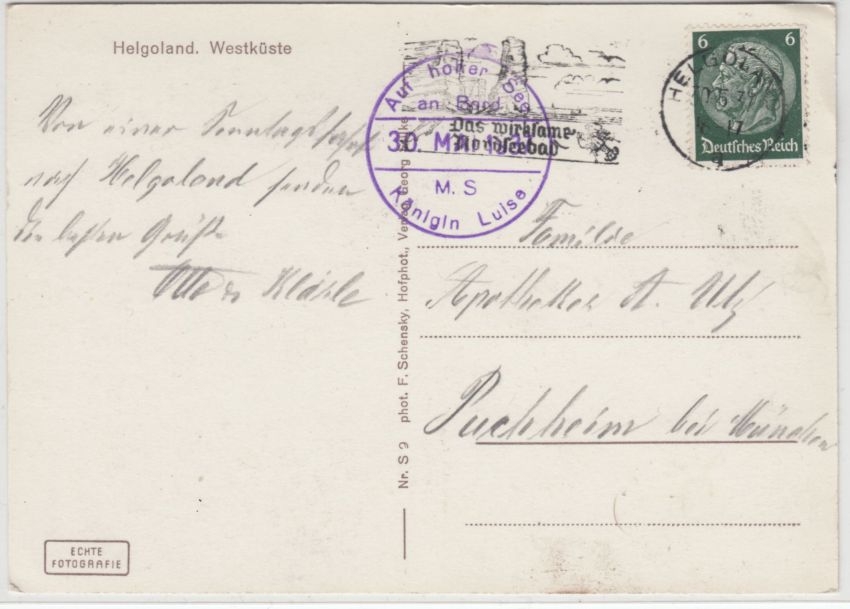 Helgoland. Westküste
Von einer Sonntagsfahrt
nach Helgoland senden
die besten Grüße
Otto u.
Auf hoher See
an Bord
30. MAI
M. S
Königin Luise
Das wirksame
Nordseebad
HELGOLAND
6 6
Deutsches Reich
Nr. S 9 phot. F. Schensky, Hofphot., Verlag Georg
Familie
Apotheker A. Utz
Puchheim bei München
ECHTE
FOTOGRAFIE